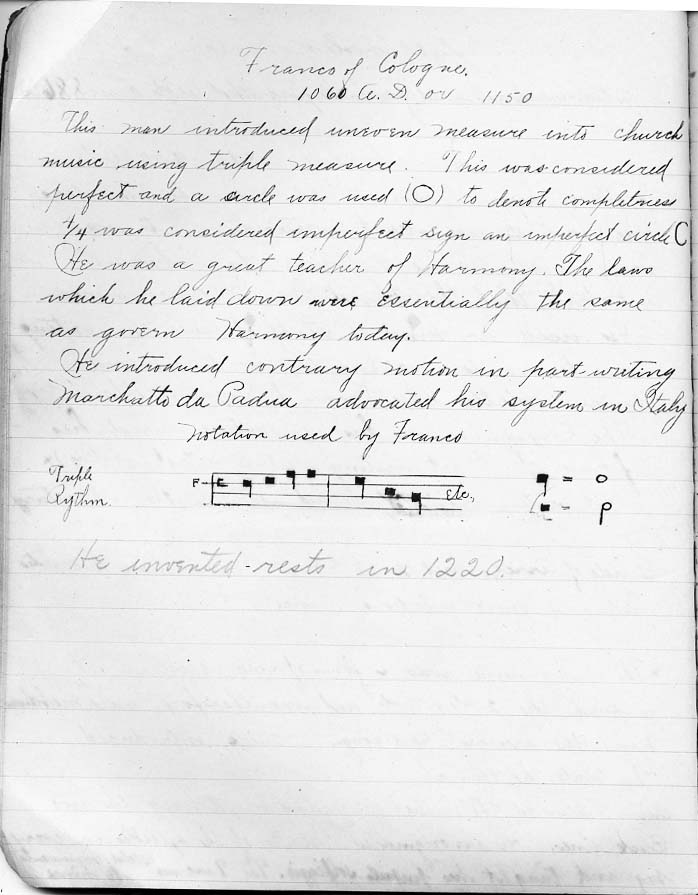 Franco of Cologne.
1060 A.D. or 1150
This man introduced uneven measure into church
music using triple measure. This was considered
perfect and a circle was used (O) to denote completness
4/4 was considered imperfect sign an imperfect circle C
He was a great teacher of Harmony. The laws
which he laid down were essentially the same
as govern Harmony today.
He introduced contrary motion in part-writing
Marchatto da Padua advocated his system in Italy
Notation used by Franco
Triple
Rythm.
F
Etc.
He invented rests in 1220.